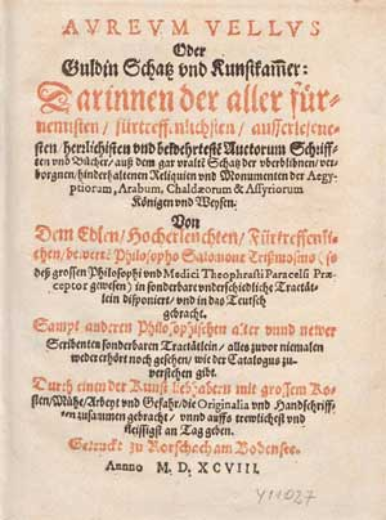 AVREVM VELLVS
Oder
Guldin Schatz vnd Kunstkam̄er:
Darinnen der aller für-
nemisten/ fürtreffenlichsten/ ausserlesene-
sten/ herrlichisten vnd bewehrtesté Auctorum Schriff-
ten vnd Bücher/ auß dem gar vralté Schatz der vberblibnen/ ver-
borgnen/ hinderhaltenen Reliquien vnd Monumenten der Aegy-
ptiorum, Arabum, Chaldæorum & Assyriorum
Königen vnd Weysen.
Von
Dem Edlen/ Hocherleuchten/ Fürtreffenli-
chen/ bewerté Philosopho Salomone Trißmosino (so
deß grossen Philosophi vnd Medici Theophrasti Paracelsi Præ-
ceptor gewesen) in sonderbare vnderschiedliche Tractät-
lein disponiert/ vnd in das Teutsch
gebracht.
Sampt anderen Philosophischen alter vnnd newer
Scribenten sonderbaren Tractätlein/ alles zuvor niemalen
weder erhört noch gesehen/ wie der Catalogus zu-
verstehen gibt.
Durch einen der Kunst liebhabern mit grossem Ko-
sten/ Mühe/ Arbeyt vnd Gefahr/ die Originalia vnd Handschriff-
ten zusammen gebracht/ vnnd auffs trewlichest vnd
fleissigst an Tag geben.
Getruckt zu Rorschach am Bodensee.
Annno M. D. XCVIII.
Y11027